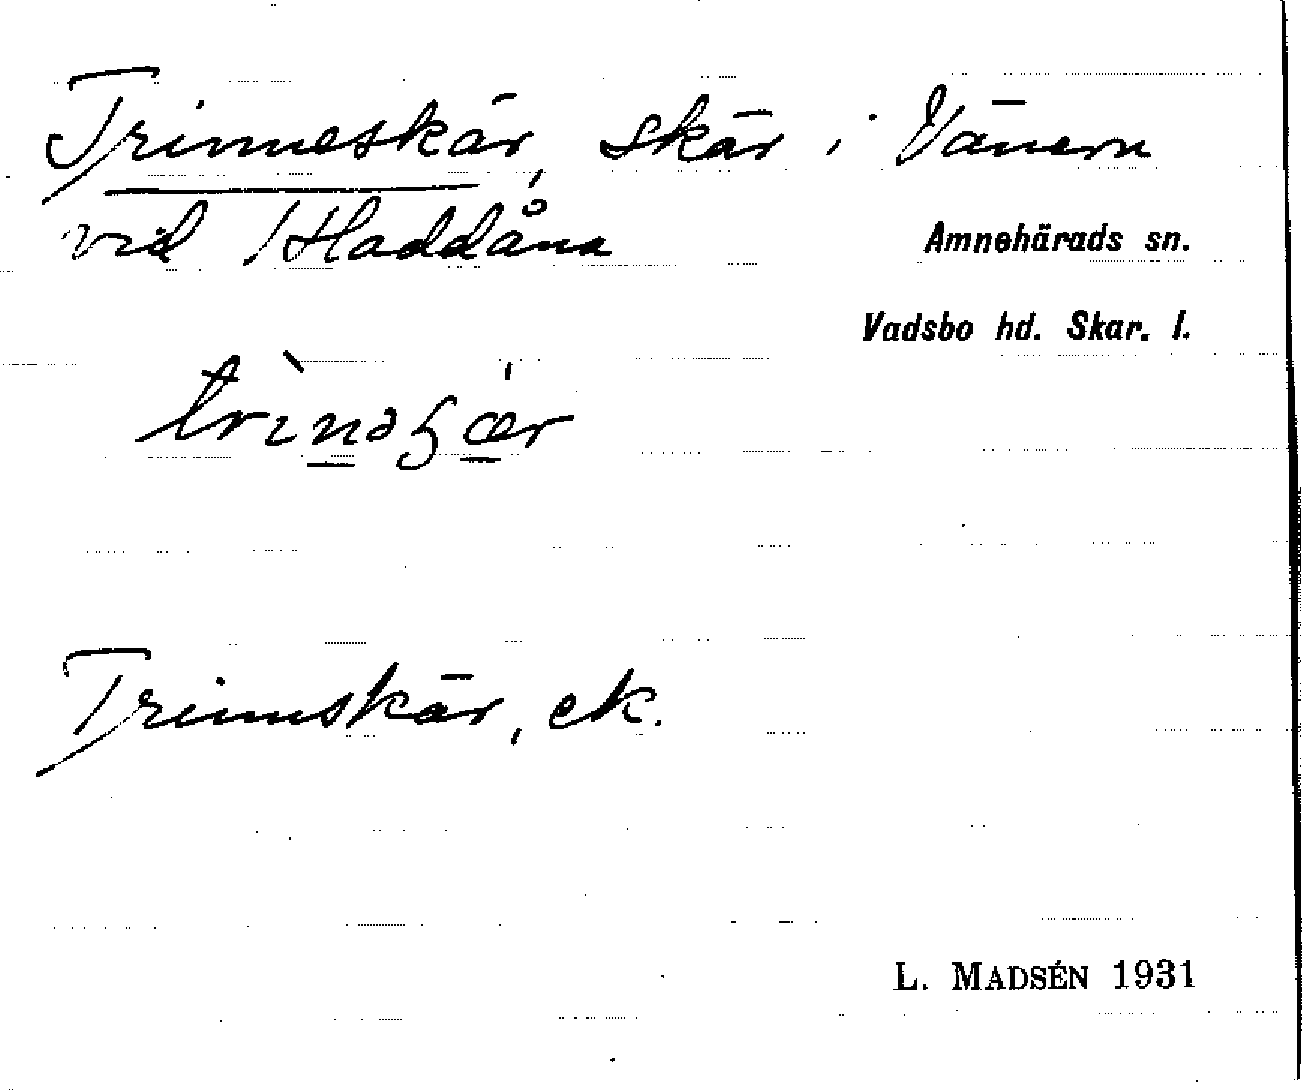 Trinneskär, skär i Vänern
vid Haddåna
Amnehärads sn.
Vadsbo hd. Skar. l.
Trinnskär, ek.
L. MADSÉN 1931